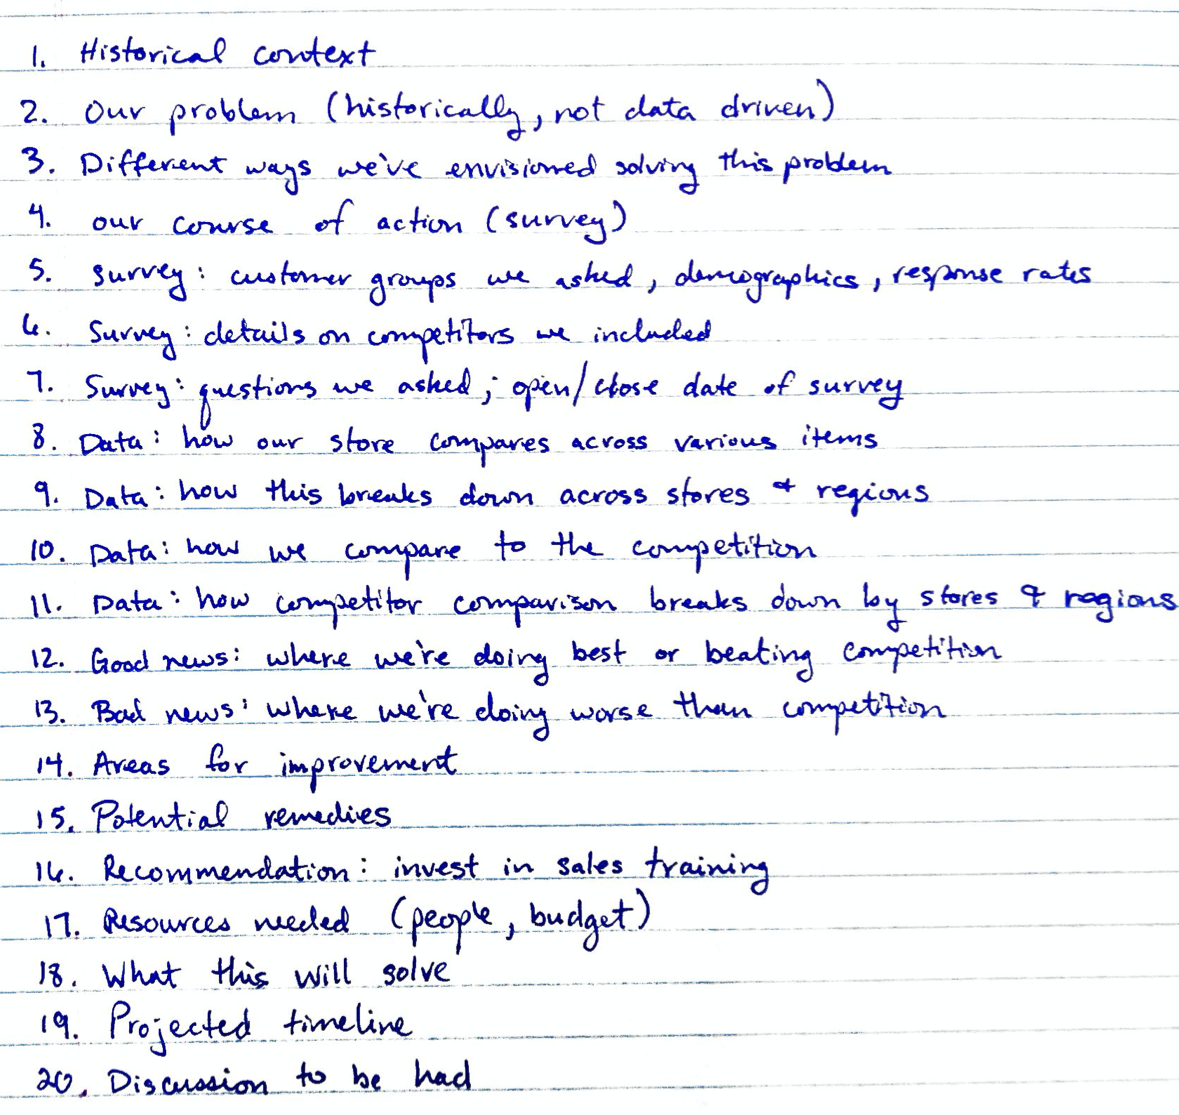 1. Historical context
2. Our problem (historically, not data driven)
3. Different ways we've envisioned solving this problem
4. our course of action (survey)
5. Survey: customer groups we asked, demographics, response rates
6. Survey: details on competitors we included
7. Survey: questions we asked; open/close date of survey
8. Data: how our store compares across various items
9. Data: how this breaks down across stores & regions
10. Data: how we compare to the competition
11. Data: how competitor comparison breaks down by stores & regions
12. Good news: where we're doing best or beating competition
13. Bad news: where we're doing worse than competition
14. Areas for improvement
15. Potential remedies
16. Recommendation: invest in sales training
17. Resources needed (people, budget)
18. What this will solve
19. Projected timeline
20. Discussion to be had